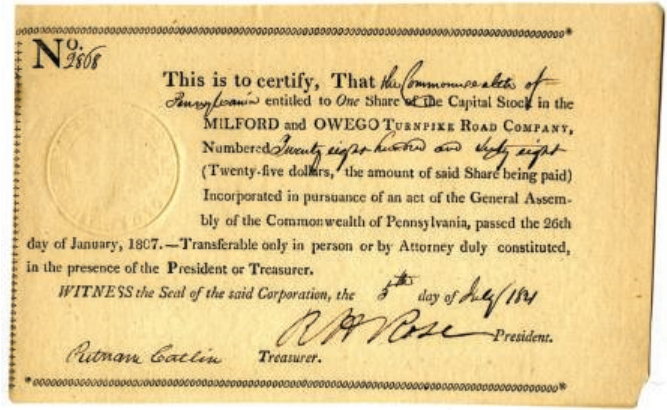 No. 2868
This is to certify, That the Commonwealth of
Pennsylvania entitled to One Share of the Capital Stock in the
MILFORD and OWEGO TURNPIKE ROAD COMPANY,
Numbered Twenty eight hundred and sixty eight
(Twenty-five dollars, the amount of said Share being paid)
Incorporated in pursuance of an act of the General Assem-
bly of the Commonwealth of Pennsylvania, passed the 26th
day of January, 1807.—Transferable only in person or by Attorney duly constituted,
in the presence of the President or Treasurer.
WITNESS the Seal of the said Corporation, the 5th day of July 1821
R H Rose President.
Putnam Catlin Treasurer.